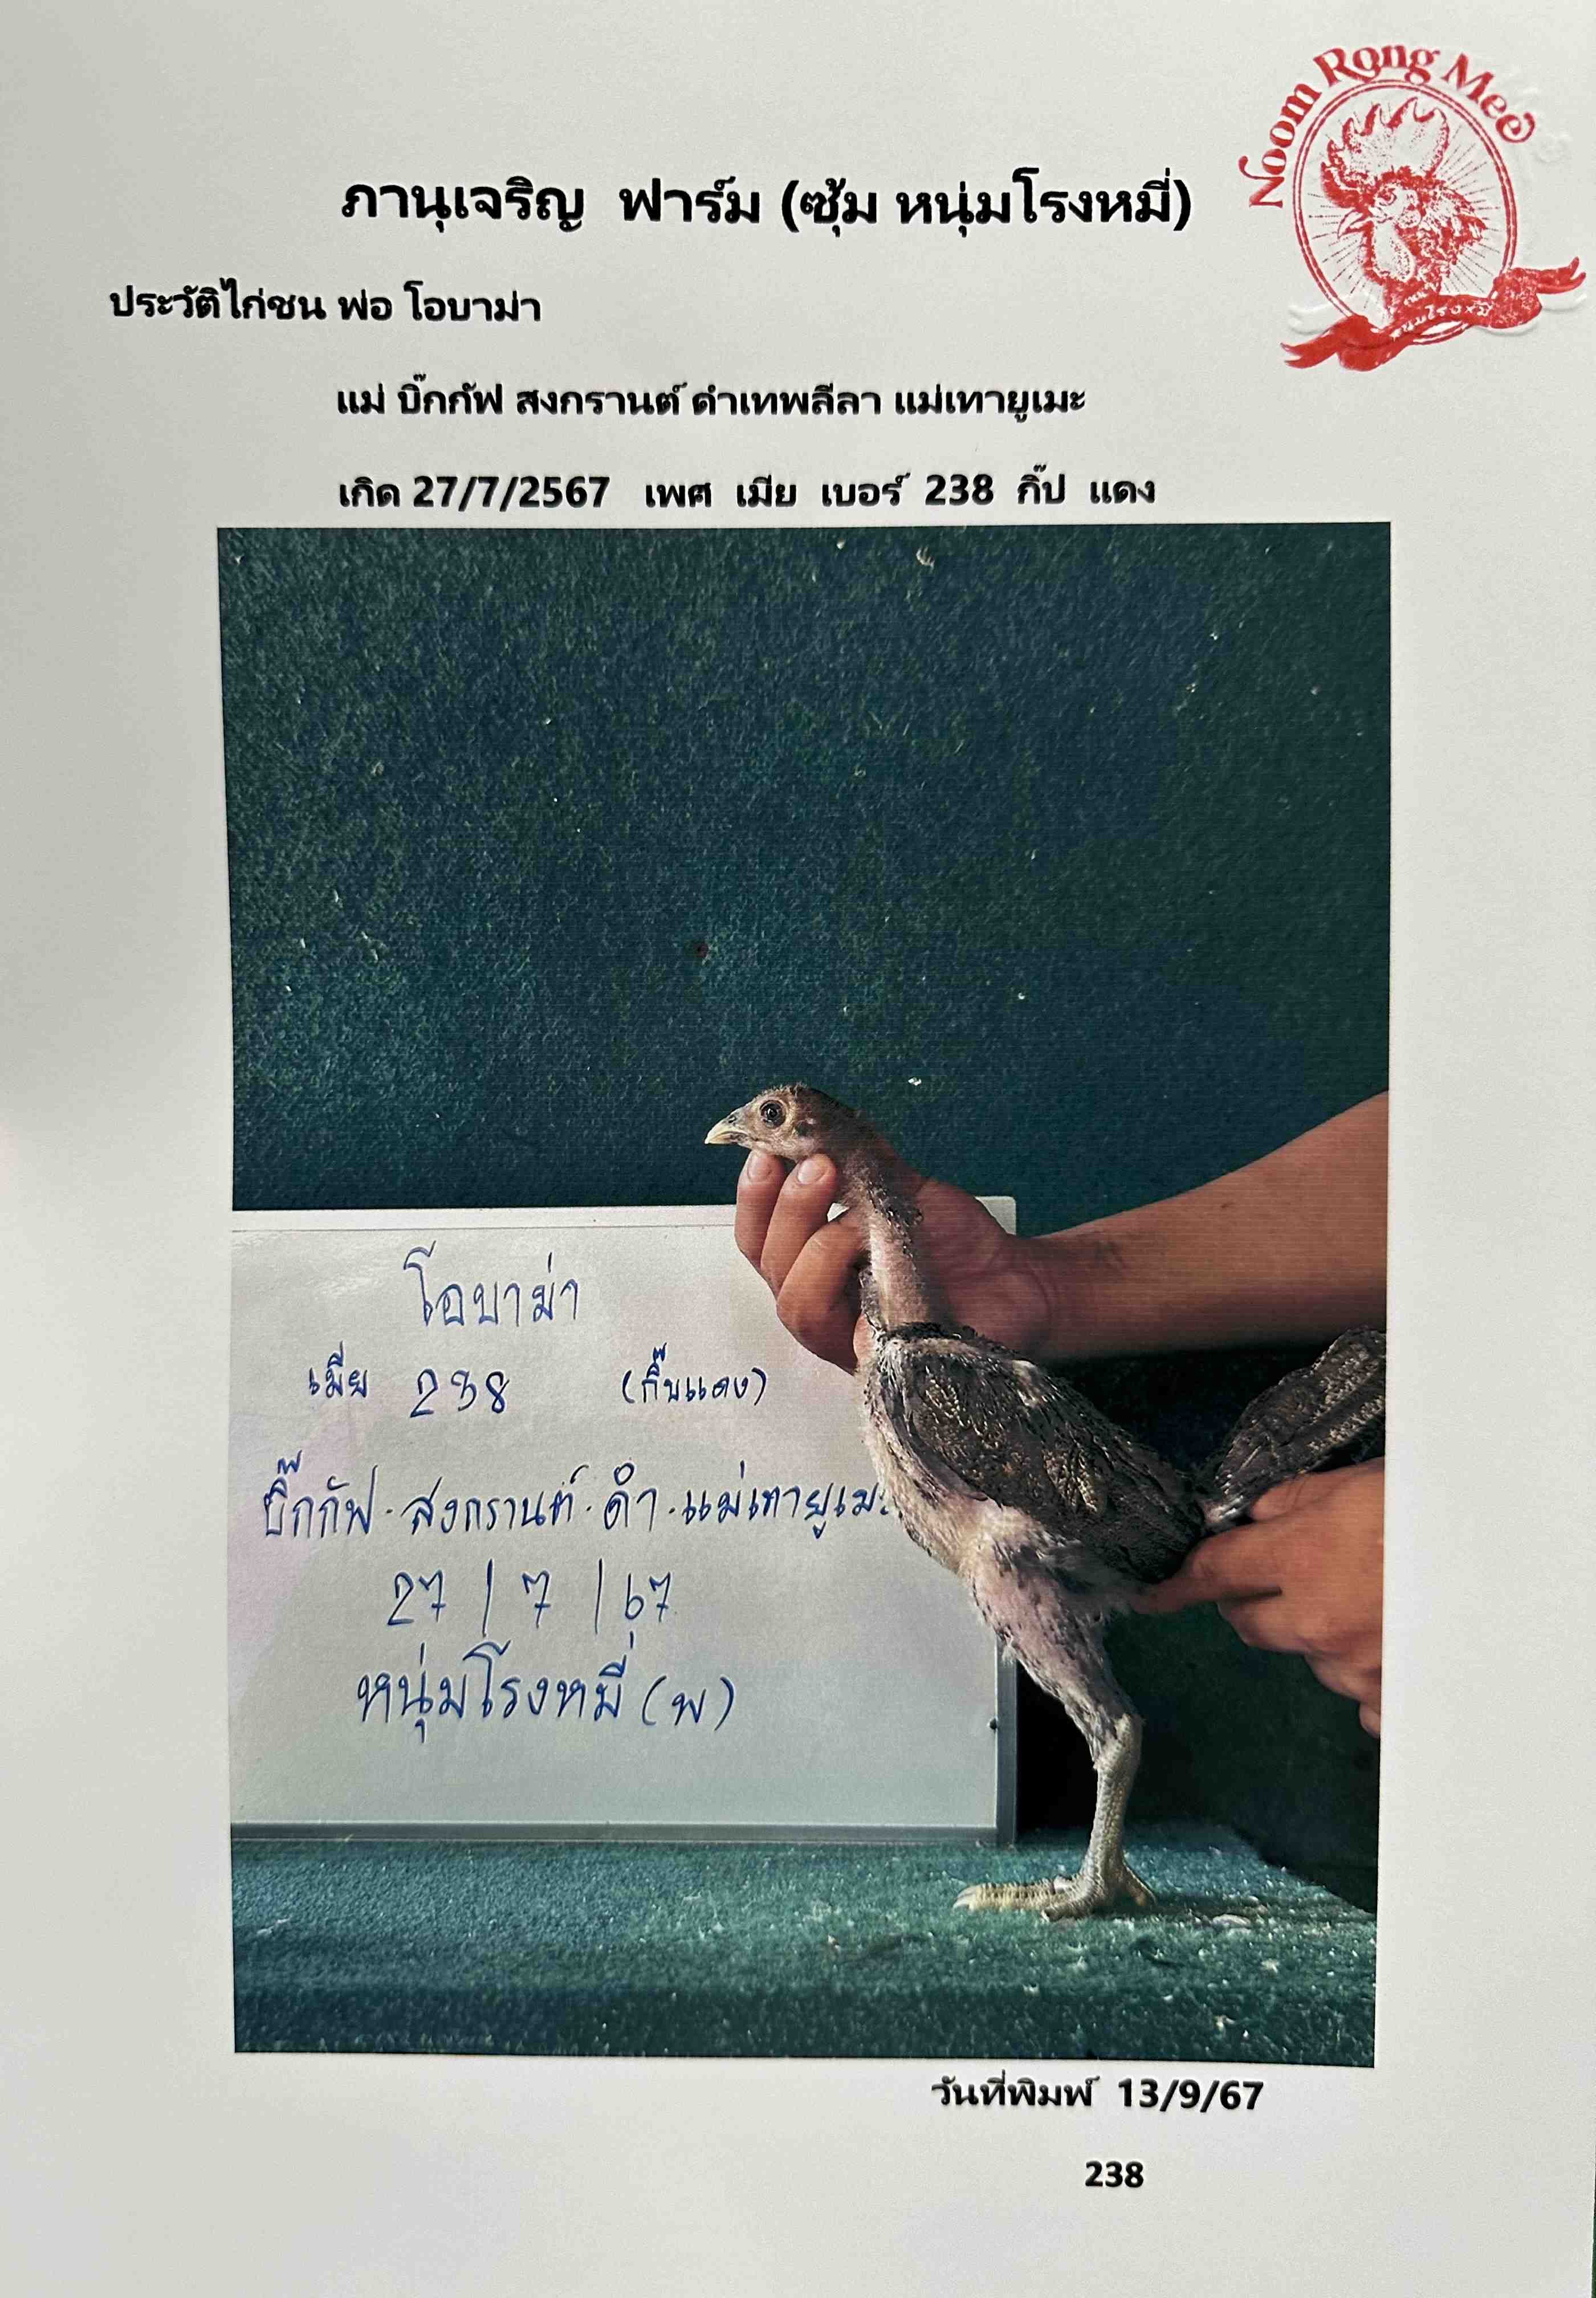 Noom Rong Mee
ภานุเจริญ ฟาร์ม (ซุ้ม หนุ่มโรงหมี่)
หนุ่มโรงหมี่
ประวัติไก่ชน พ่อ โอบาม่า
แม่ บิ๊กกัฟ สงกรานต์ ดำเทพลีลา แม่เทายูเมะ
เกิด 27/7/2567 เพศ เมีย เบอร์ 238 กิ๊ป แดง
โอบาม่า
เมีย 238 (กิ๊บแดง)
บิ๊กกัฟ.สงกรานต์.ดำ.แม่เทายูเมะ
27/7/67
หนุ่มโรงหมี่ (พ)
วันที่พิมพ์ 13/9/67
238